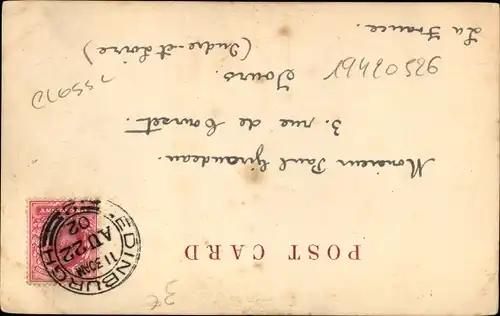 POST CARD
EDINBURGH
11.30AM
AU 22
02
Monsieur Paul Giraudeau.
3. rue de Courset.
Tours.
(Indre-et-Loire)
La France.
3€